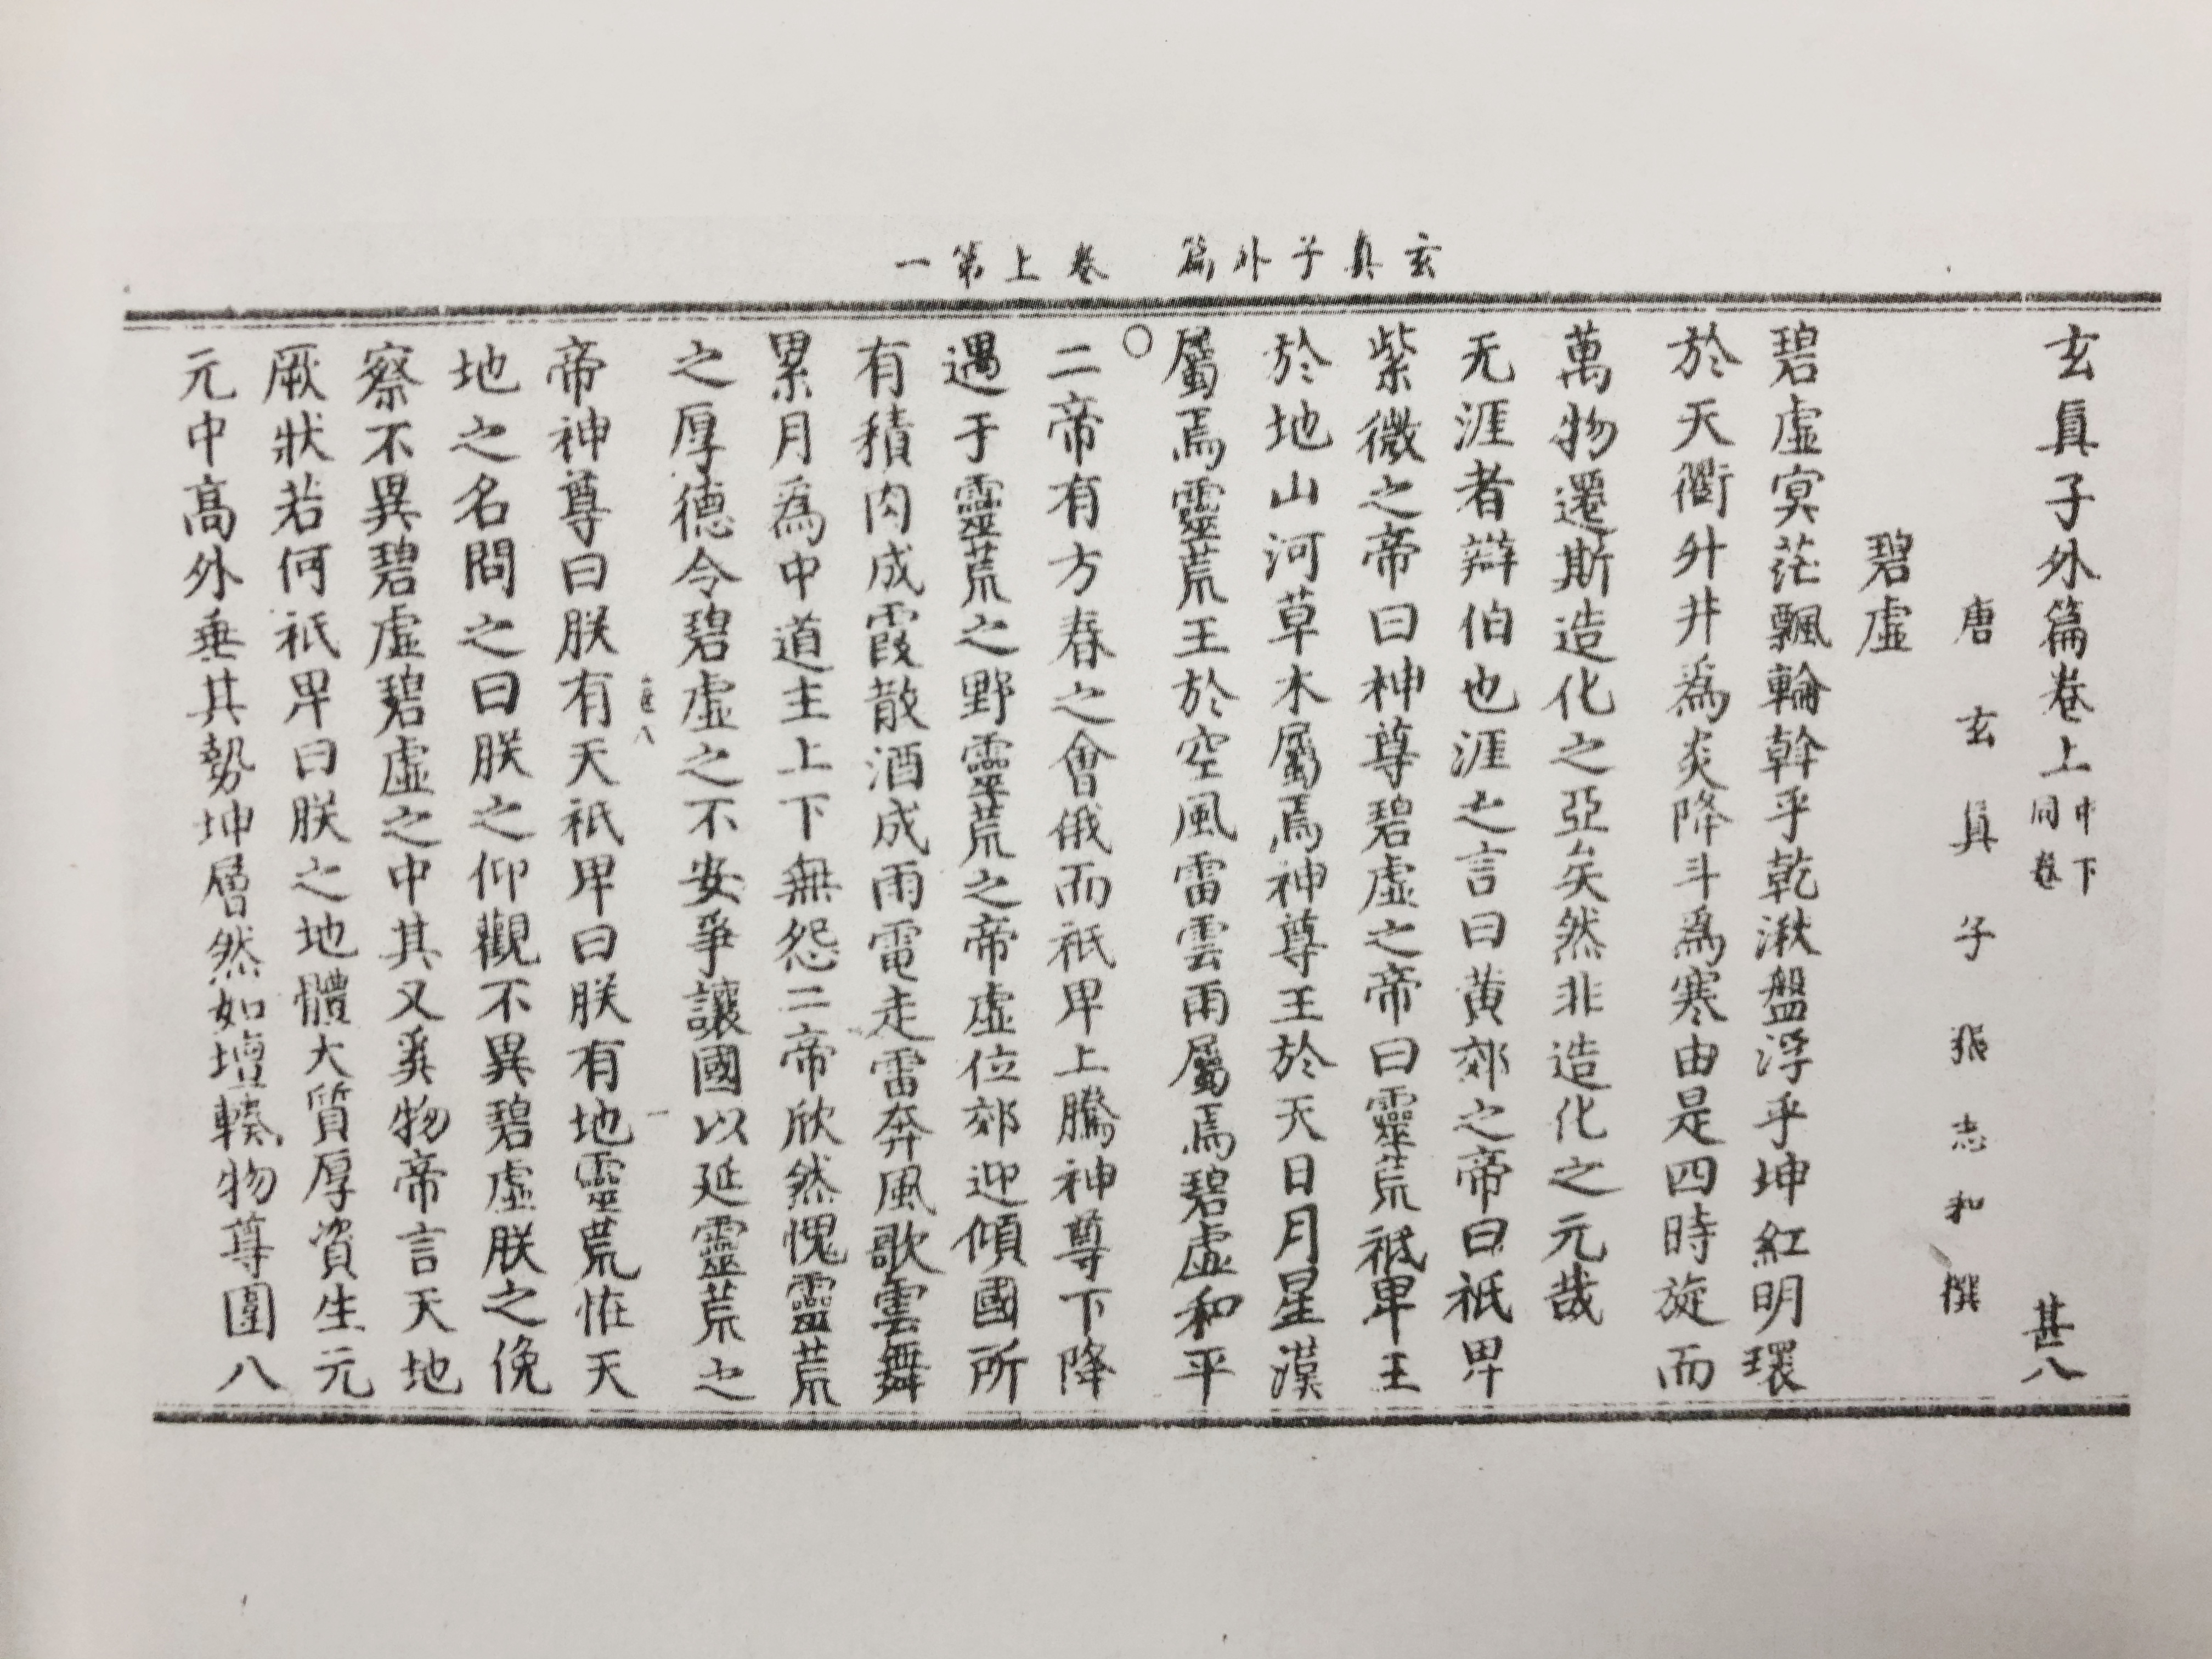 玄真子外篇　卷上第一
玄眞子外篇卷上中下同卷　甚八
唐玄眞子張志和撰
碧虛
碧虛冥茫飄輪斡乎乾湫盤浮乎坤紅明環
於天衢升井爲炎降斗爲寒由是四時旋而
萬物遷斯造化之亞矣然非造化之元哉
无涯者辯伯也涯之言曰黄郊之帝曰祇卑
紫微之帝曰神尊碧虛之帝曰靈荒祇卑王
於地山河草木屬焉神尊王於天日月星漢
屬焉靈荒王於空風雷雲雨屬焉碧虛和平
二帝有方春之會俄而祇卑上騰神尊下降
遇于靈荒之野靈荒之帝虛位郊迎傾國所
有積肉成霞散酒成雨電走雷奔風歌雲舞
累月爲中道主上下無怨二帝欣然愧靈荒
之厚德令碧虛之不安爭讓國以延靈荒之
帝神尊曰朕有天祇卑曰朕有地靈荒恠天
地之名問之曰朕之仰觀不異碧虛朕之俛
察不異碧虛碧虛之中其又奚物帝言天地
厥狀若何祇卑曰朕之地體大質厚資生元
元中高外垂其勢坤層然如壇輳物尊圍八